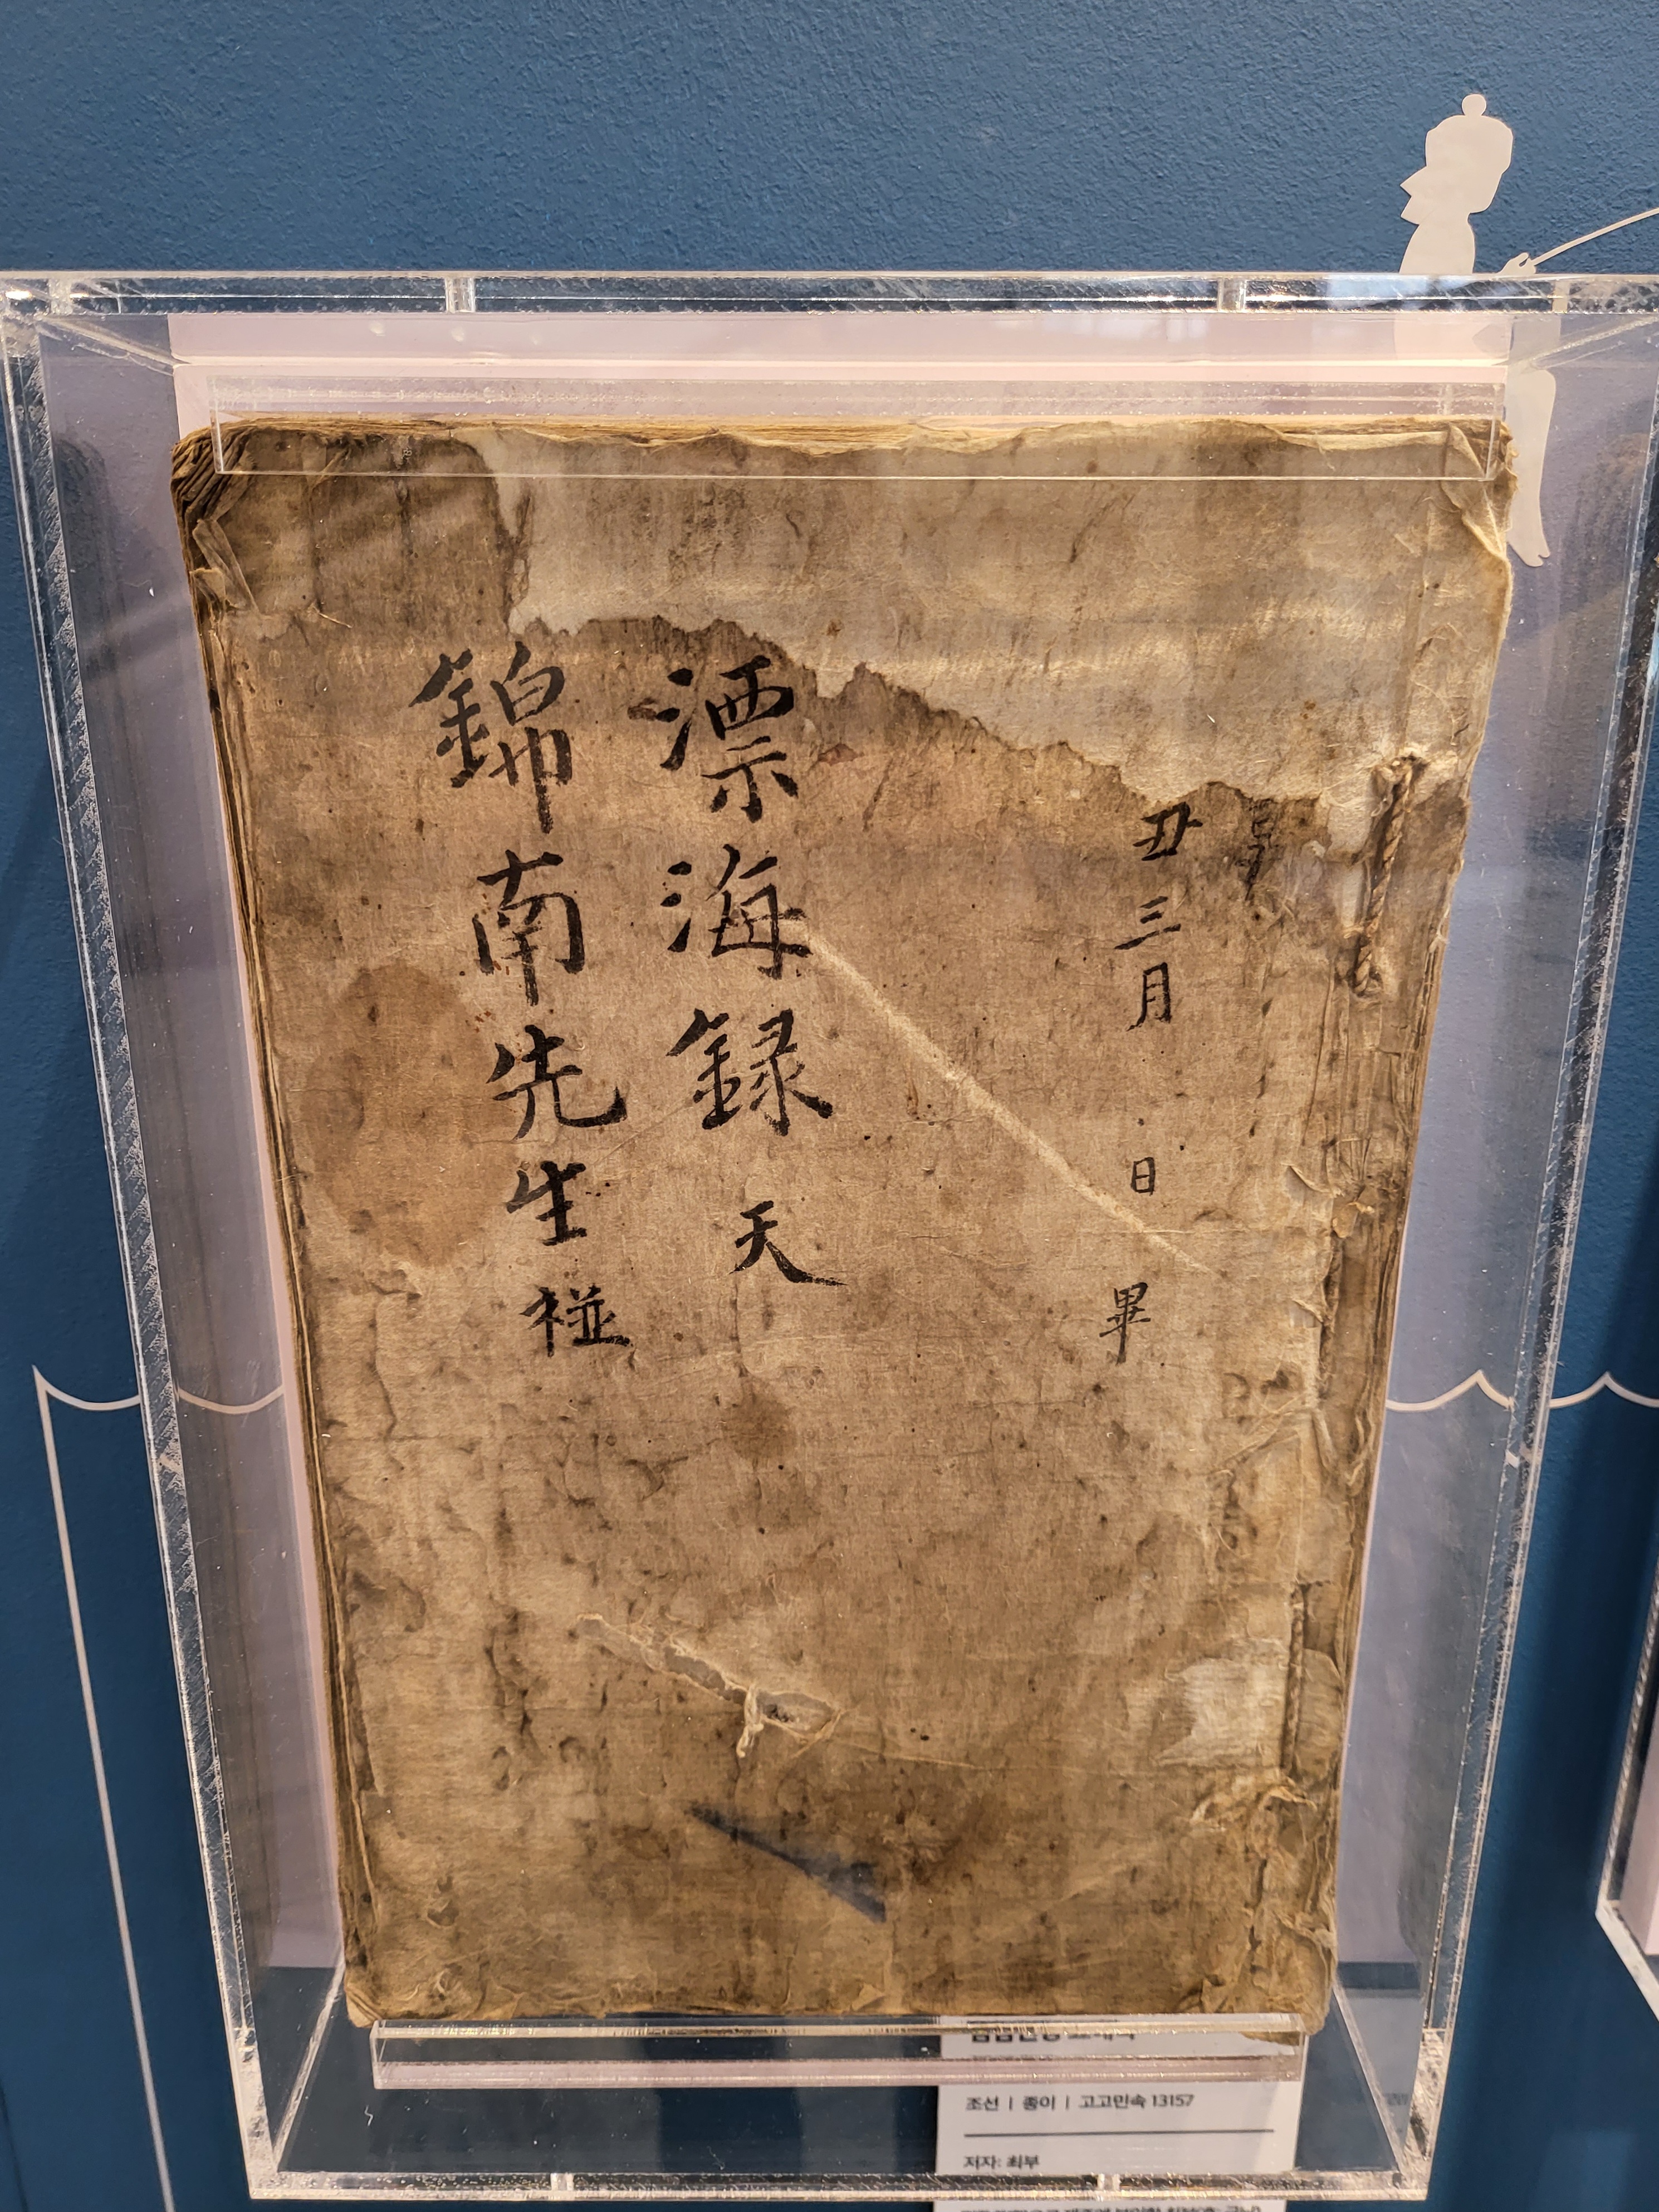 丑三月 日 畢
漂海録 天
錦南先生
조선 | 종이 | 고고민속 13157
저자: 최부